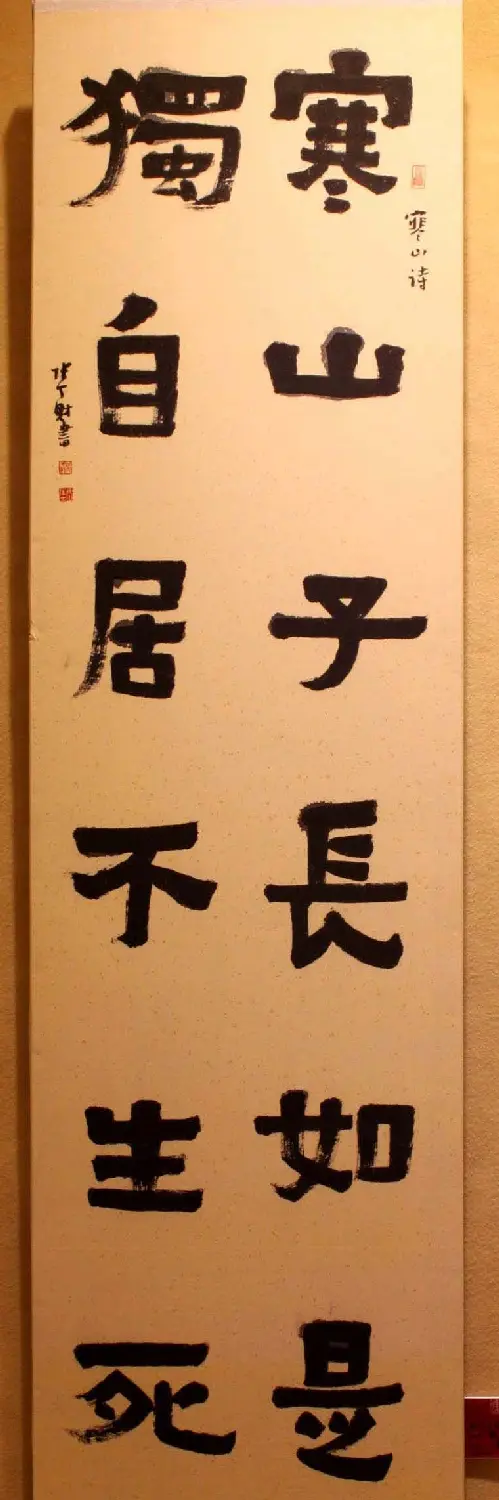 寒山子長如是
寒山诗
獨自居不生死